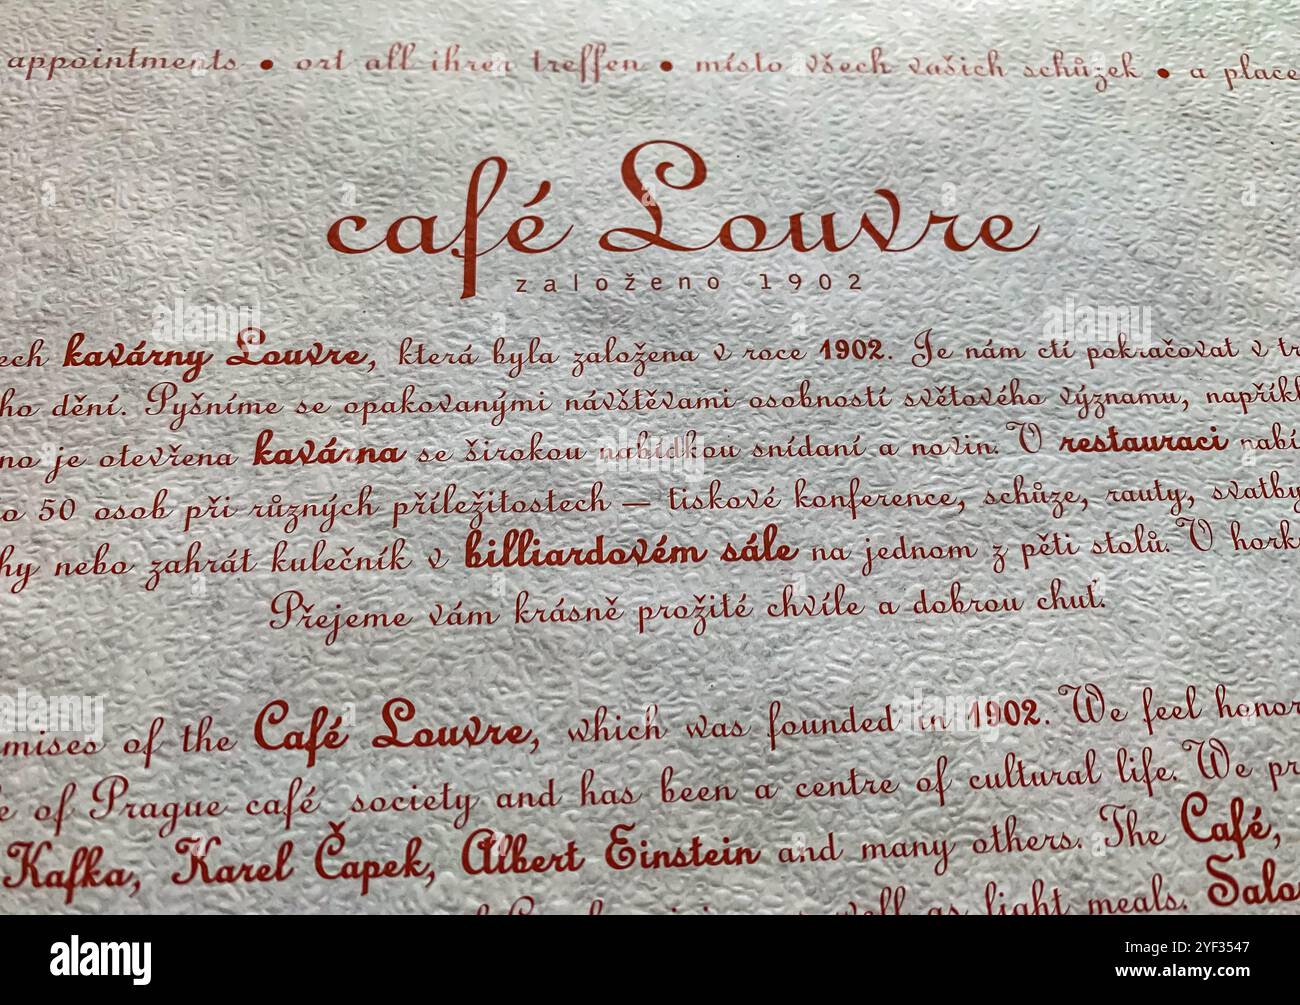 appointments • ort all ihrer treffen • místo všech vašich schůzek • a place
café Louvre
založeno 1902
ech kavárny Louvre, která byla založena v roce 1902. Je nám ctí pokračovat v tr
ho dění. Pyšníme se opakovanými návštěvami osobností světového významu, napříkl
no je otevřena kavárna se širokou nabídkou snídaní a novin. V restauraci nabí
o 50 osob při různých příležitostech — tiskové konference, schůze, rauty, svatby
hy nebo zahrát kulečník v billiardovém sále na jednom z pěti stolů. V hork
Přejeme vám krásně prožité chvíle a dobrou chuť.
mises of the Café Louvre, which was founded in 1902. We feel honor
e of Prague café society and has been a centre of cultural life. We pr
Kafka, Karel Čapek, Albert Einstein and many others. The Café,
well as light meals. Salo
alamy
Image ID: 2YF3547
www.alamy.com